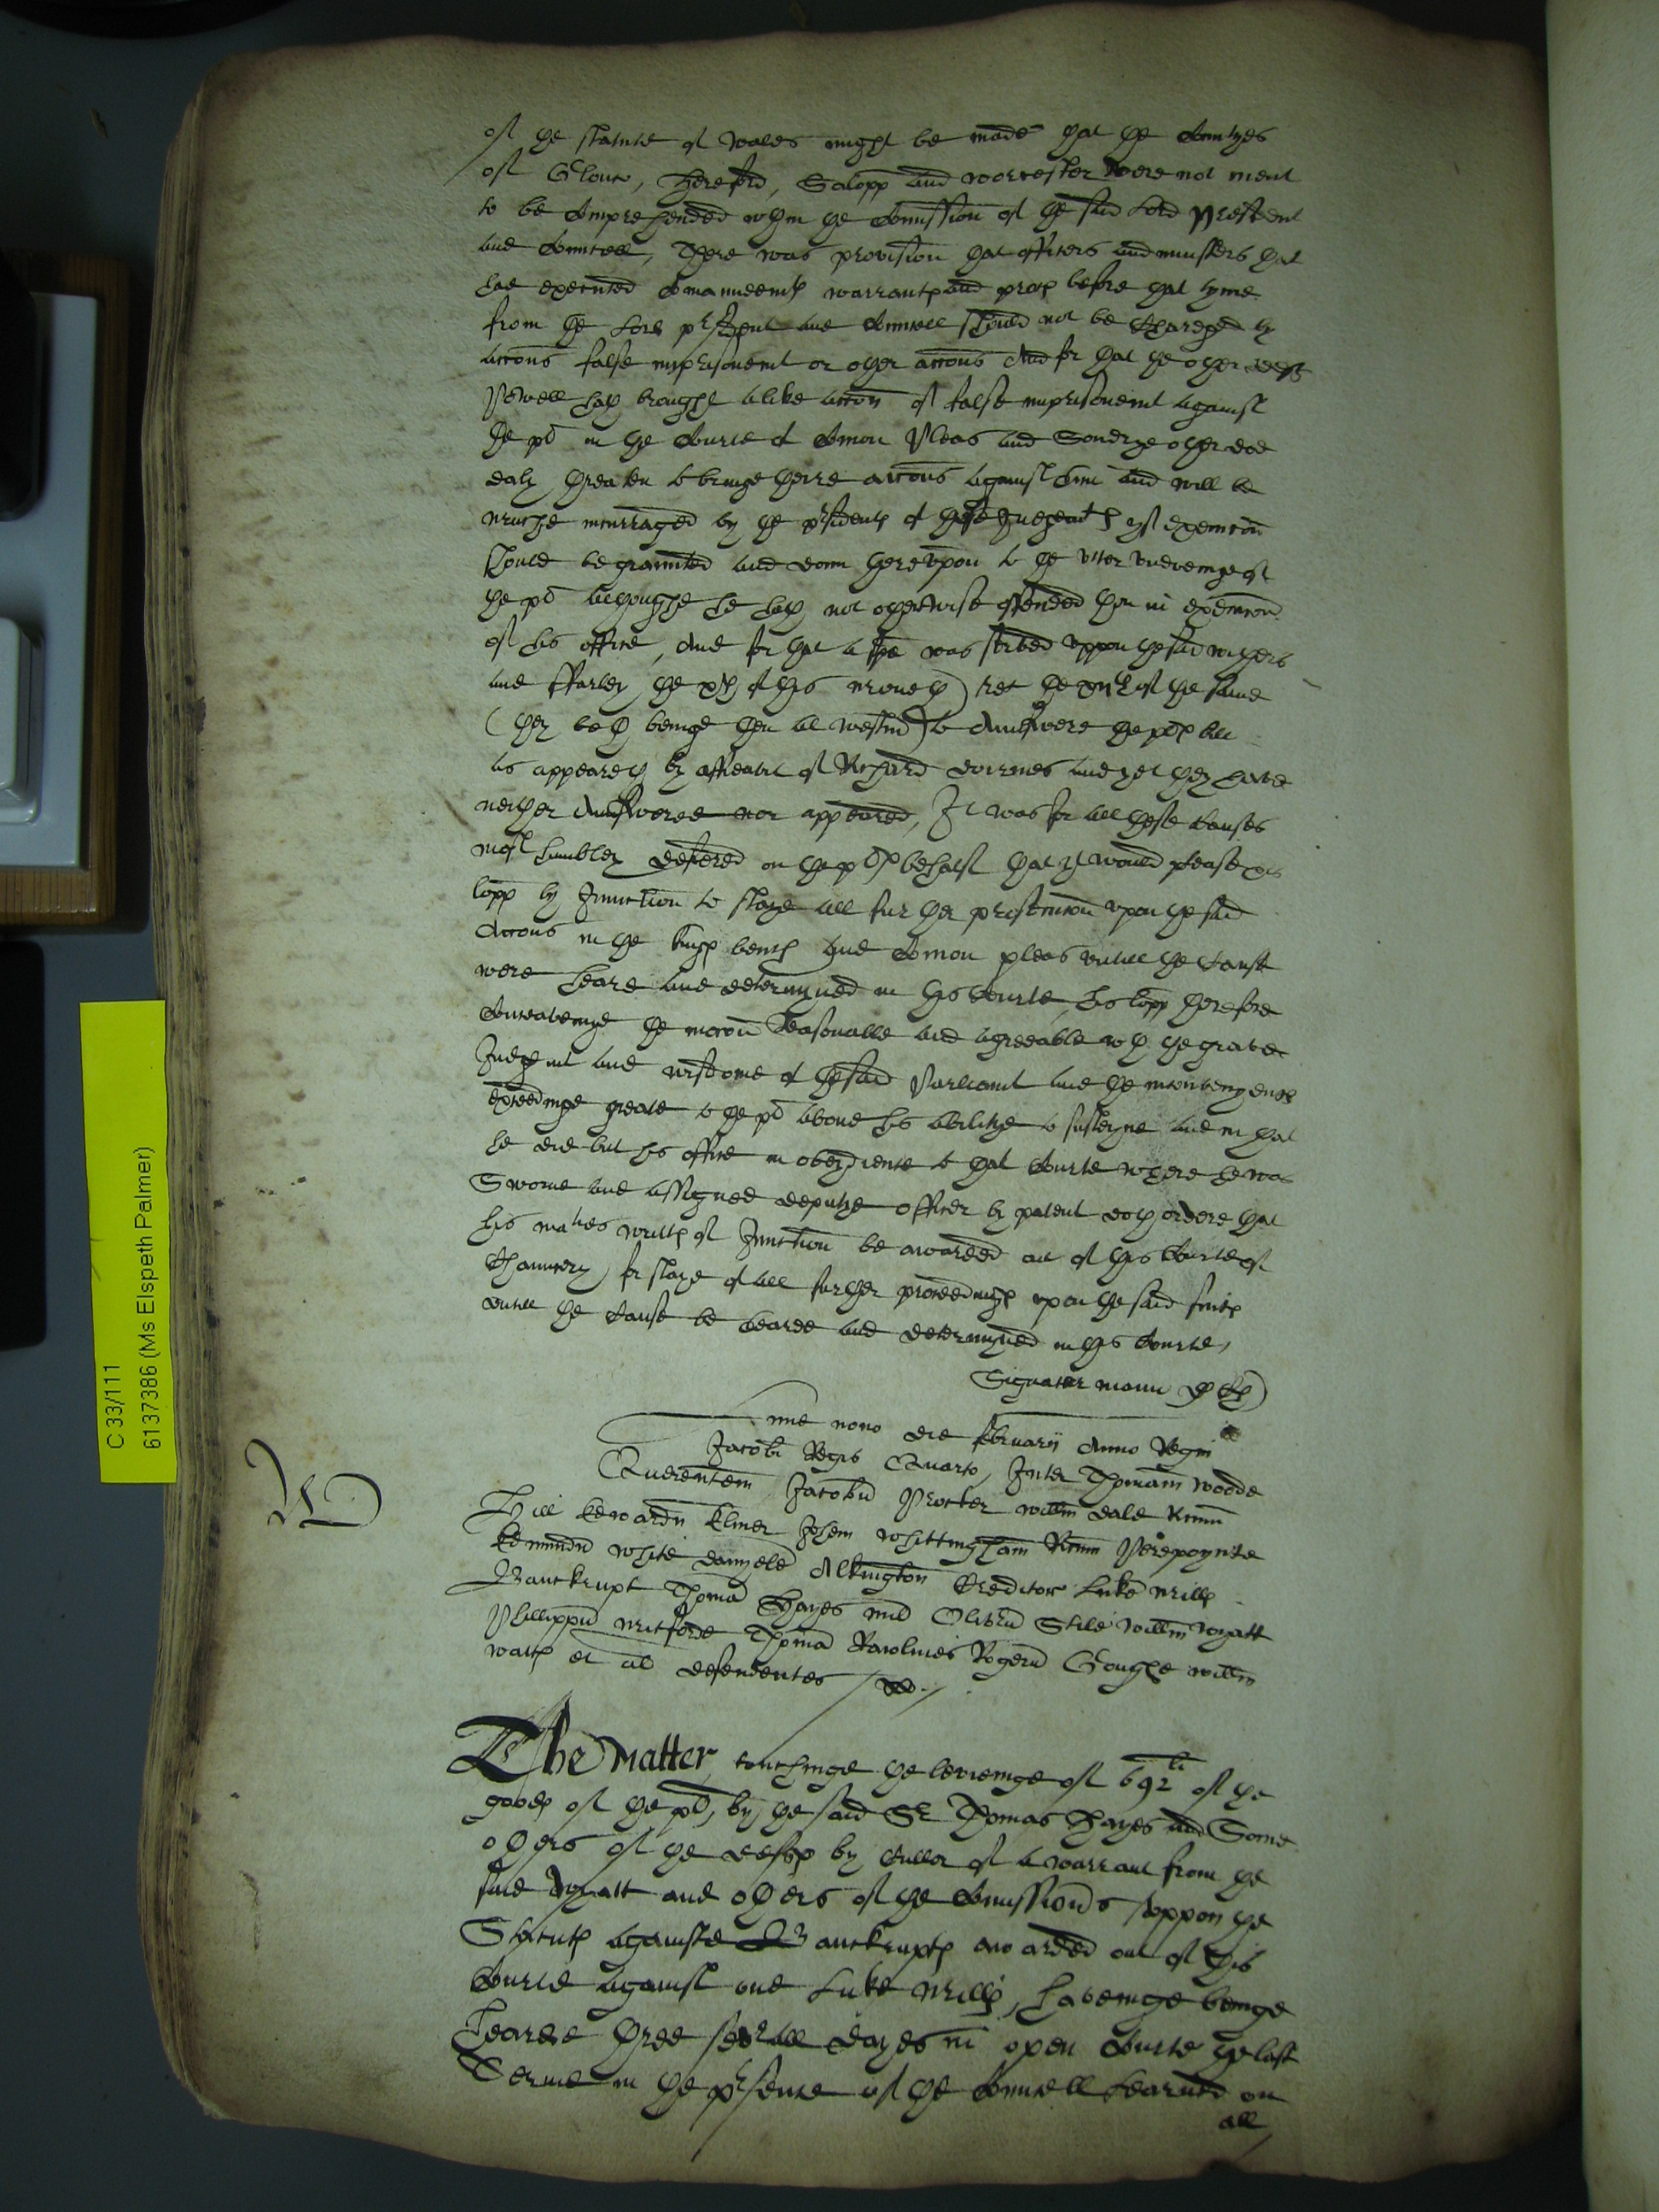 of the statute of Wales might be made that the Countyes
of Glouc, Hereford, Salopp and Worcester were not ment
to be comprehended wthin the Comission of the said Lord President
and Councell, There was provision that officers and ministers that
had executed Comaundemts warrants and proces before that tyme
from the Lord president and Councell should not be Charged by
accons false imprisonemt or other accons And for that the other deft
Powell hath brought a like accon of false imprisonemt against
the pl in the Courte of Comon Pleas and Sondrye other doe
daly threaten to bringe theire accons against him and will be
muche incurraged by the psidents of these Iudgemts yf execucon
should be graunted and donn thereupon to the utter undoeinge of
the pl althoughe he hath not otherwise offended then in execucon
of his office, And for that a spa was served uppon the said
and Farley the xth of this moneth) ret the of the same
(they both beinge then at Westm) to Aunswere the pls bill
as appeareth by affidavit of Richard and yet they have
neither Aunswered nor appeared, It was for all these Causes
most humbley desiered on the pls behalf that yt would please his
lopp by Iniunction to staye all further prosecucon upon the said
Accons in the kings bench and Comon pleas untill the Cause
were heard and determyned in this Courte, his lopp therefore
Conceaveinge the mocon Reasonable and agreeable wth the grave
Iudgemt and wisdome of the said Parliamt and the inconvenyence
exceedinge greate to the pl above his abilitye to susteyne and in that
he did but his office in obeydience to that Courte where he was
Sworne and assigned deputye officer by patent doth ordere that
his maties writts of Iniunction be awarded out of this Courte of
Chauncery for staye of all further proceedings upon the said suits
untill the Cause be hearde and determyned in this Courte,
Signatur manu
nono die februarij Anno Regni
Jacobi Regis Quarto, Inter Thomam Woodde
Querentem Jacobu Procter Willm Dale Ricum
Hill Edwardu Elmer Johem Whittingham Ricum Perepoynte
Edmundu White Danyele Alkington Creditor Luke Mills
Banckrupt Thoma Hayes mil Oliveru Stile Willm Wyatt
Phillippu Mitforde Thoma Rawlines Rogeru Goughe Willm
Watts et al defendentes
The Matter touchinge the levieinge of 692li of the
goods of the pl, by the said Sr Thomas Hayes and Some
others of the defts by Culler of a warrant from the
said Wyatt and others of the Comissioners uppon the
Statute againste Banckrupts awarded out of this
Courte against one Luke Mills, haveinge beinge
hearde three severall dayes in open Courte the last
Terme in the psence of the Councell Learned on
all
C 33/111
6137386 (Ms Elspeth Palmer)